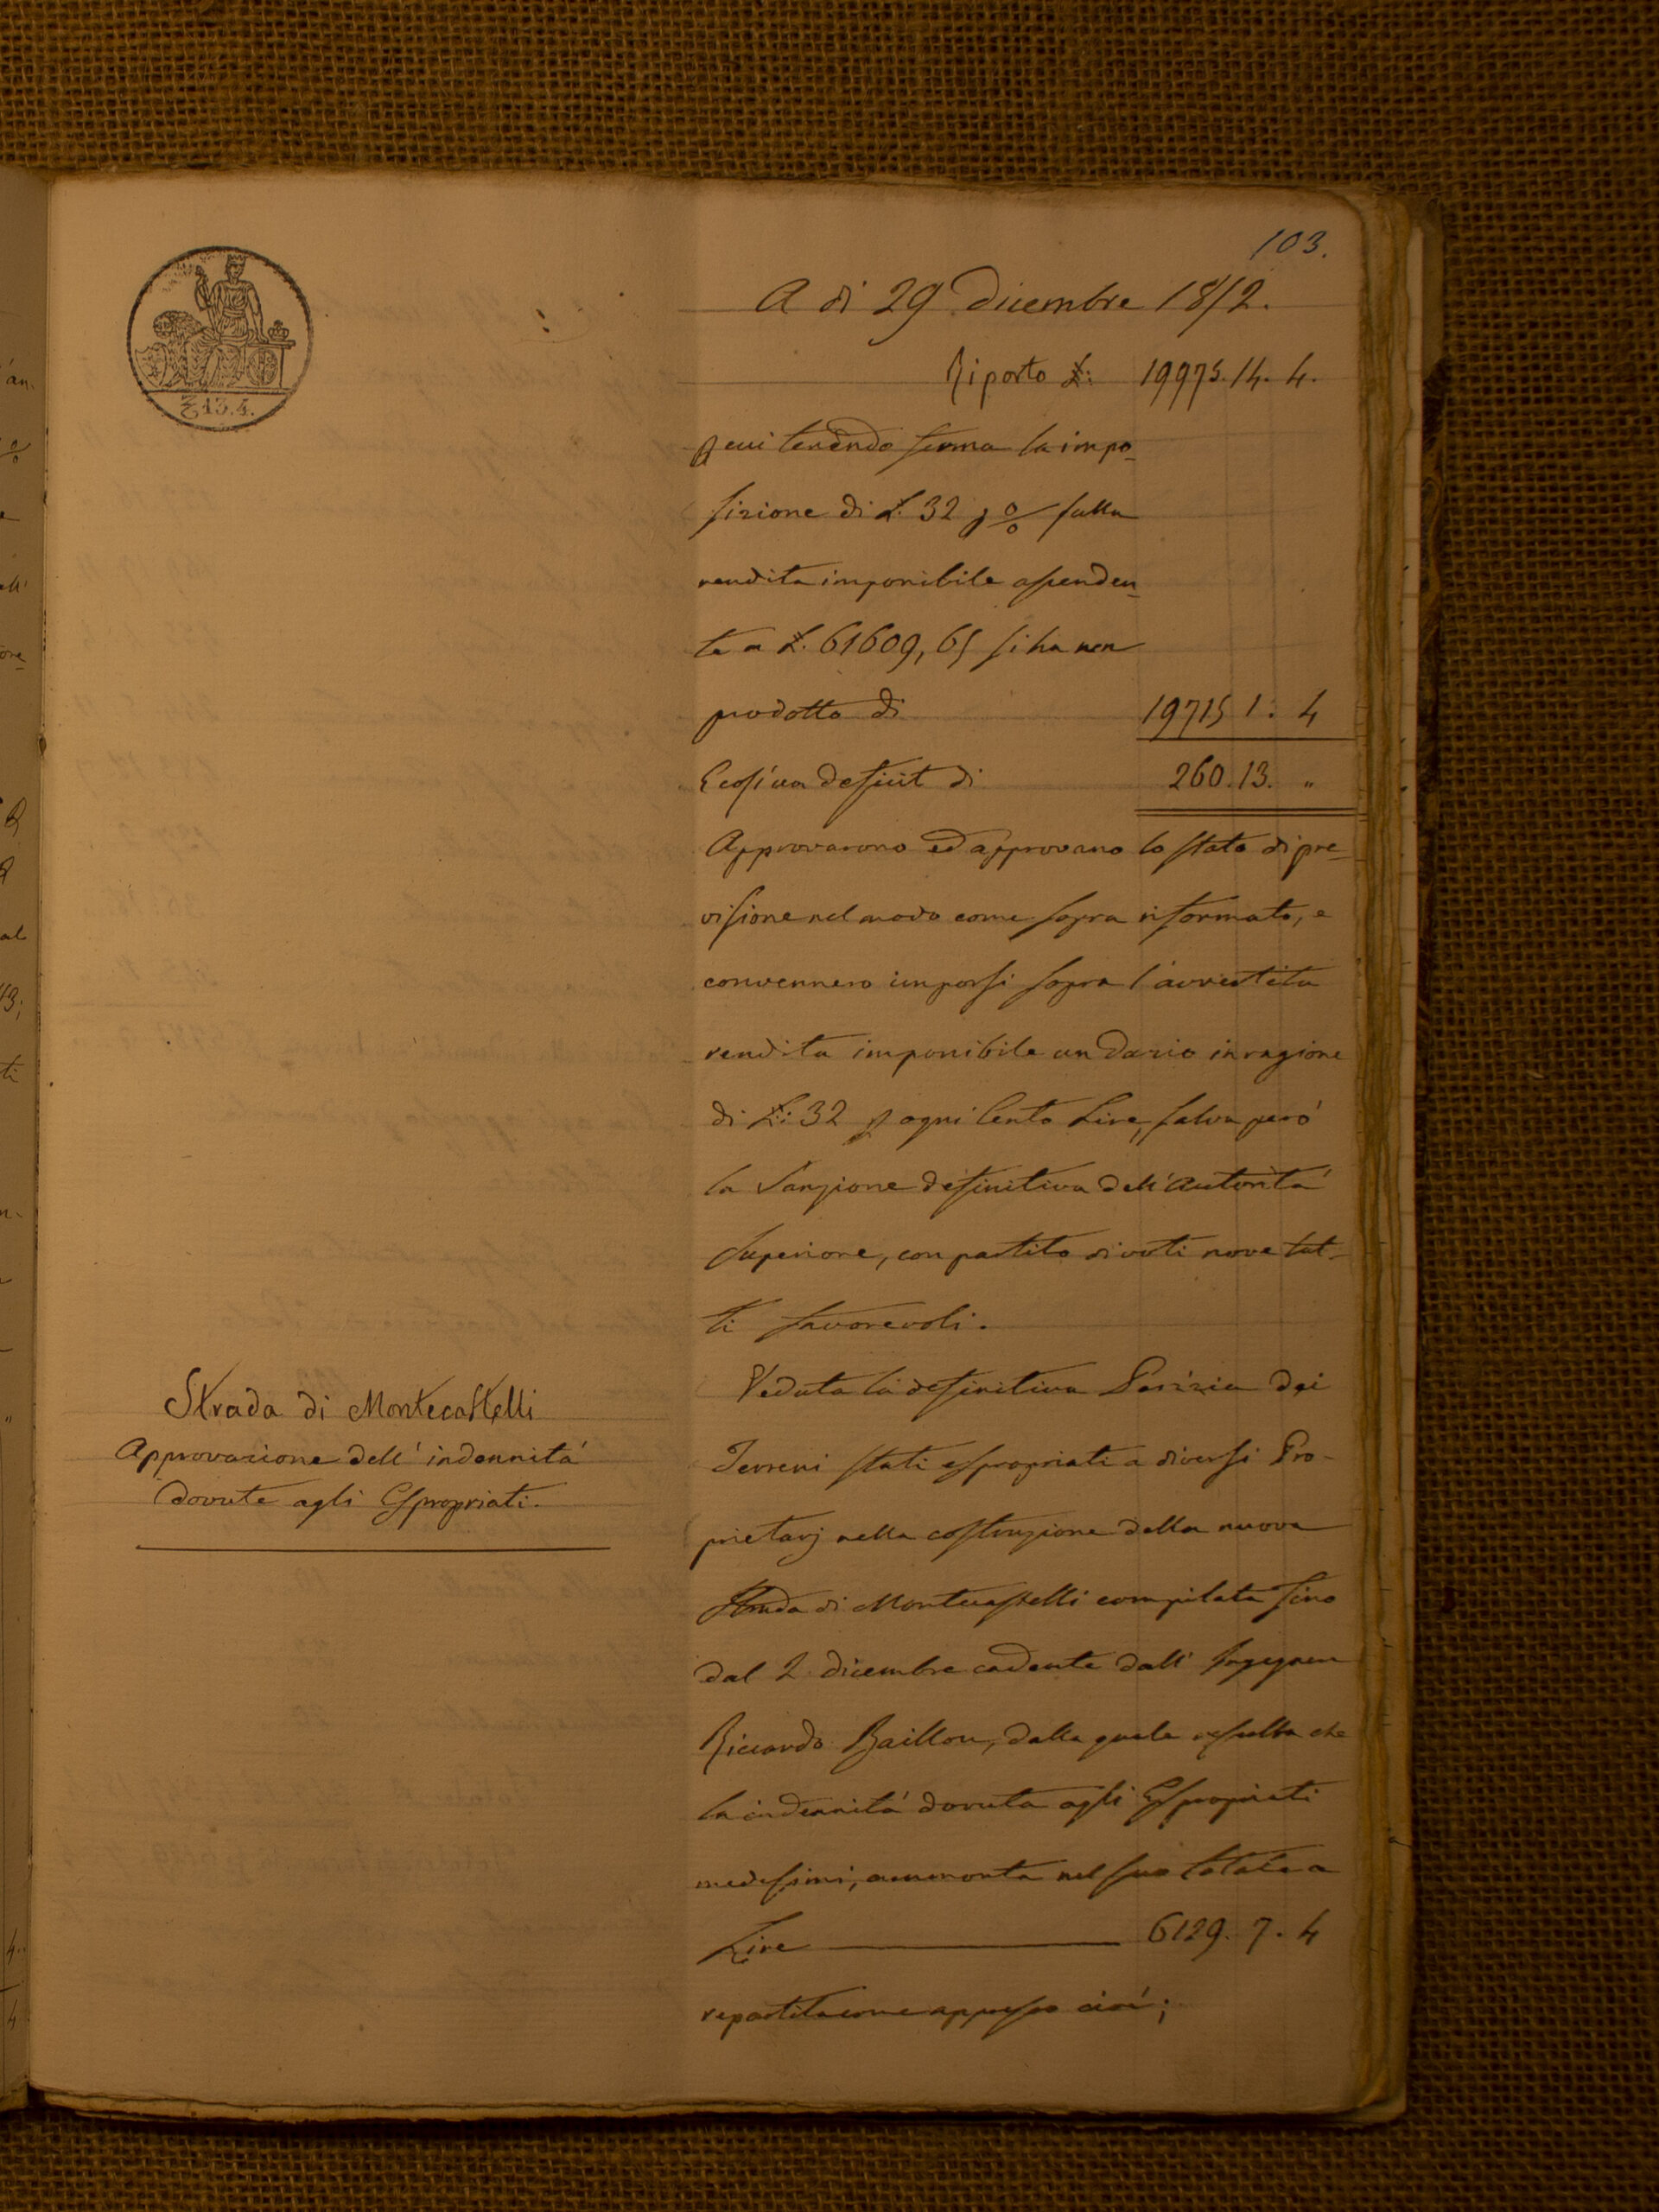 103.
A dì 29 Dicembre 1852.
Riporto £: 19975. 14. 4.
£ 13.4.
p cui tenendo ferma la impo=
sizione di £. 32 p % sulla
rendita imponibile ascenden=
te a £. 61609,65 si ha un
prodotto di 19715 1. 4
E così un deficit di 260. 13. "
Approvarono ed approvano lo stato di pre=
visione nel modo come sopra riformato, e
convennero imporsi sopra l'avvertita
rendita imponibile un Dazio in ragione
di £: 32 p ogni Cento Lire, salva però
la Sanzione definitiva dell'Autorità
Superiore, con partito di voti nove tut=
ti favorevoli.
Strada di Montecastelli
Approvazione dell'indennità
dovute agli Espropriati.
Veduta la definitiva Perizia dei
Terreni stati espropriati a diversi Pro=
prietarj nella costruzione della nuova
Strada di Montecastelli compilata sino
dal 2 dicembre cadente dall'Ingegnere
Riccardo Baillou, dalla quale resulta che
la indennità dovuta agli Espropriati
medesimi, ammonta nel suo totale a
Lire 6129. 7. 4
repartita come appresso cioè;